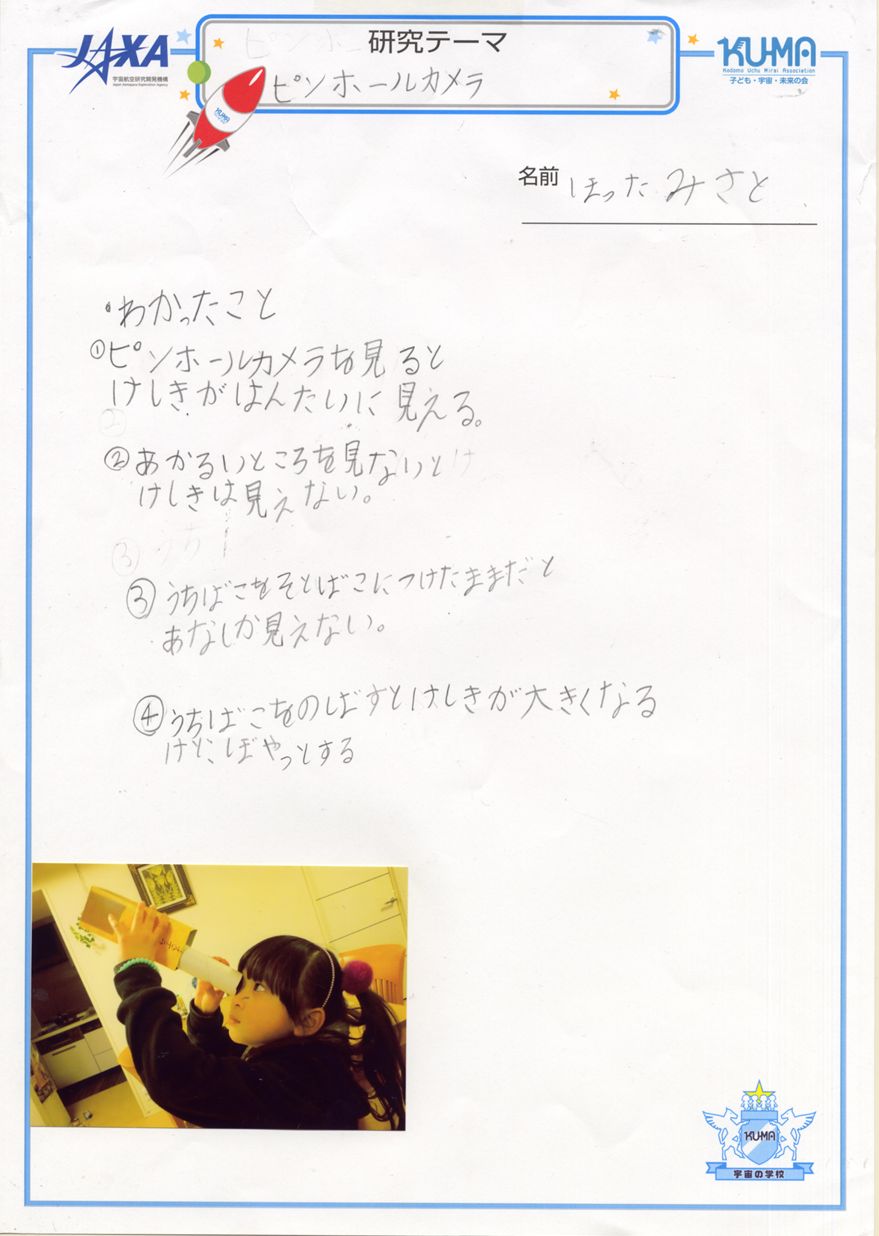 JAXA
宇宙航空研究開発機構
Japan Aerospace Exploration Agency
研究テーマ
ピンホールカメラ
KUMA
KU-MA
Kodomo Uchu Mirai Association
子ども・宇宙・未来の会
名前 ほったみさと
・わかったこと
①ピンホールカメラを見ると
けしきがはんたいに見える。
②あかるいところを見ないと
けしきは見えない。
③うちばこをそとばこにつけたままだと
あなしか見えない。
④うちばこをのばすとけしきが大きくなる
けど、ぼやっとする
KU-MA
宇宙の学校